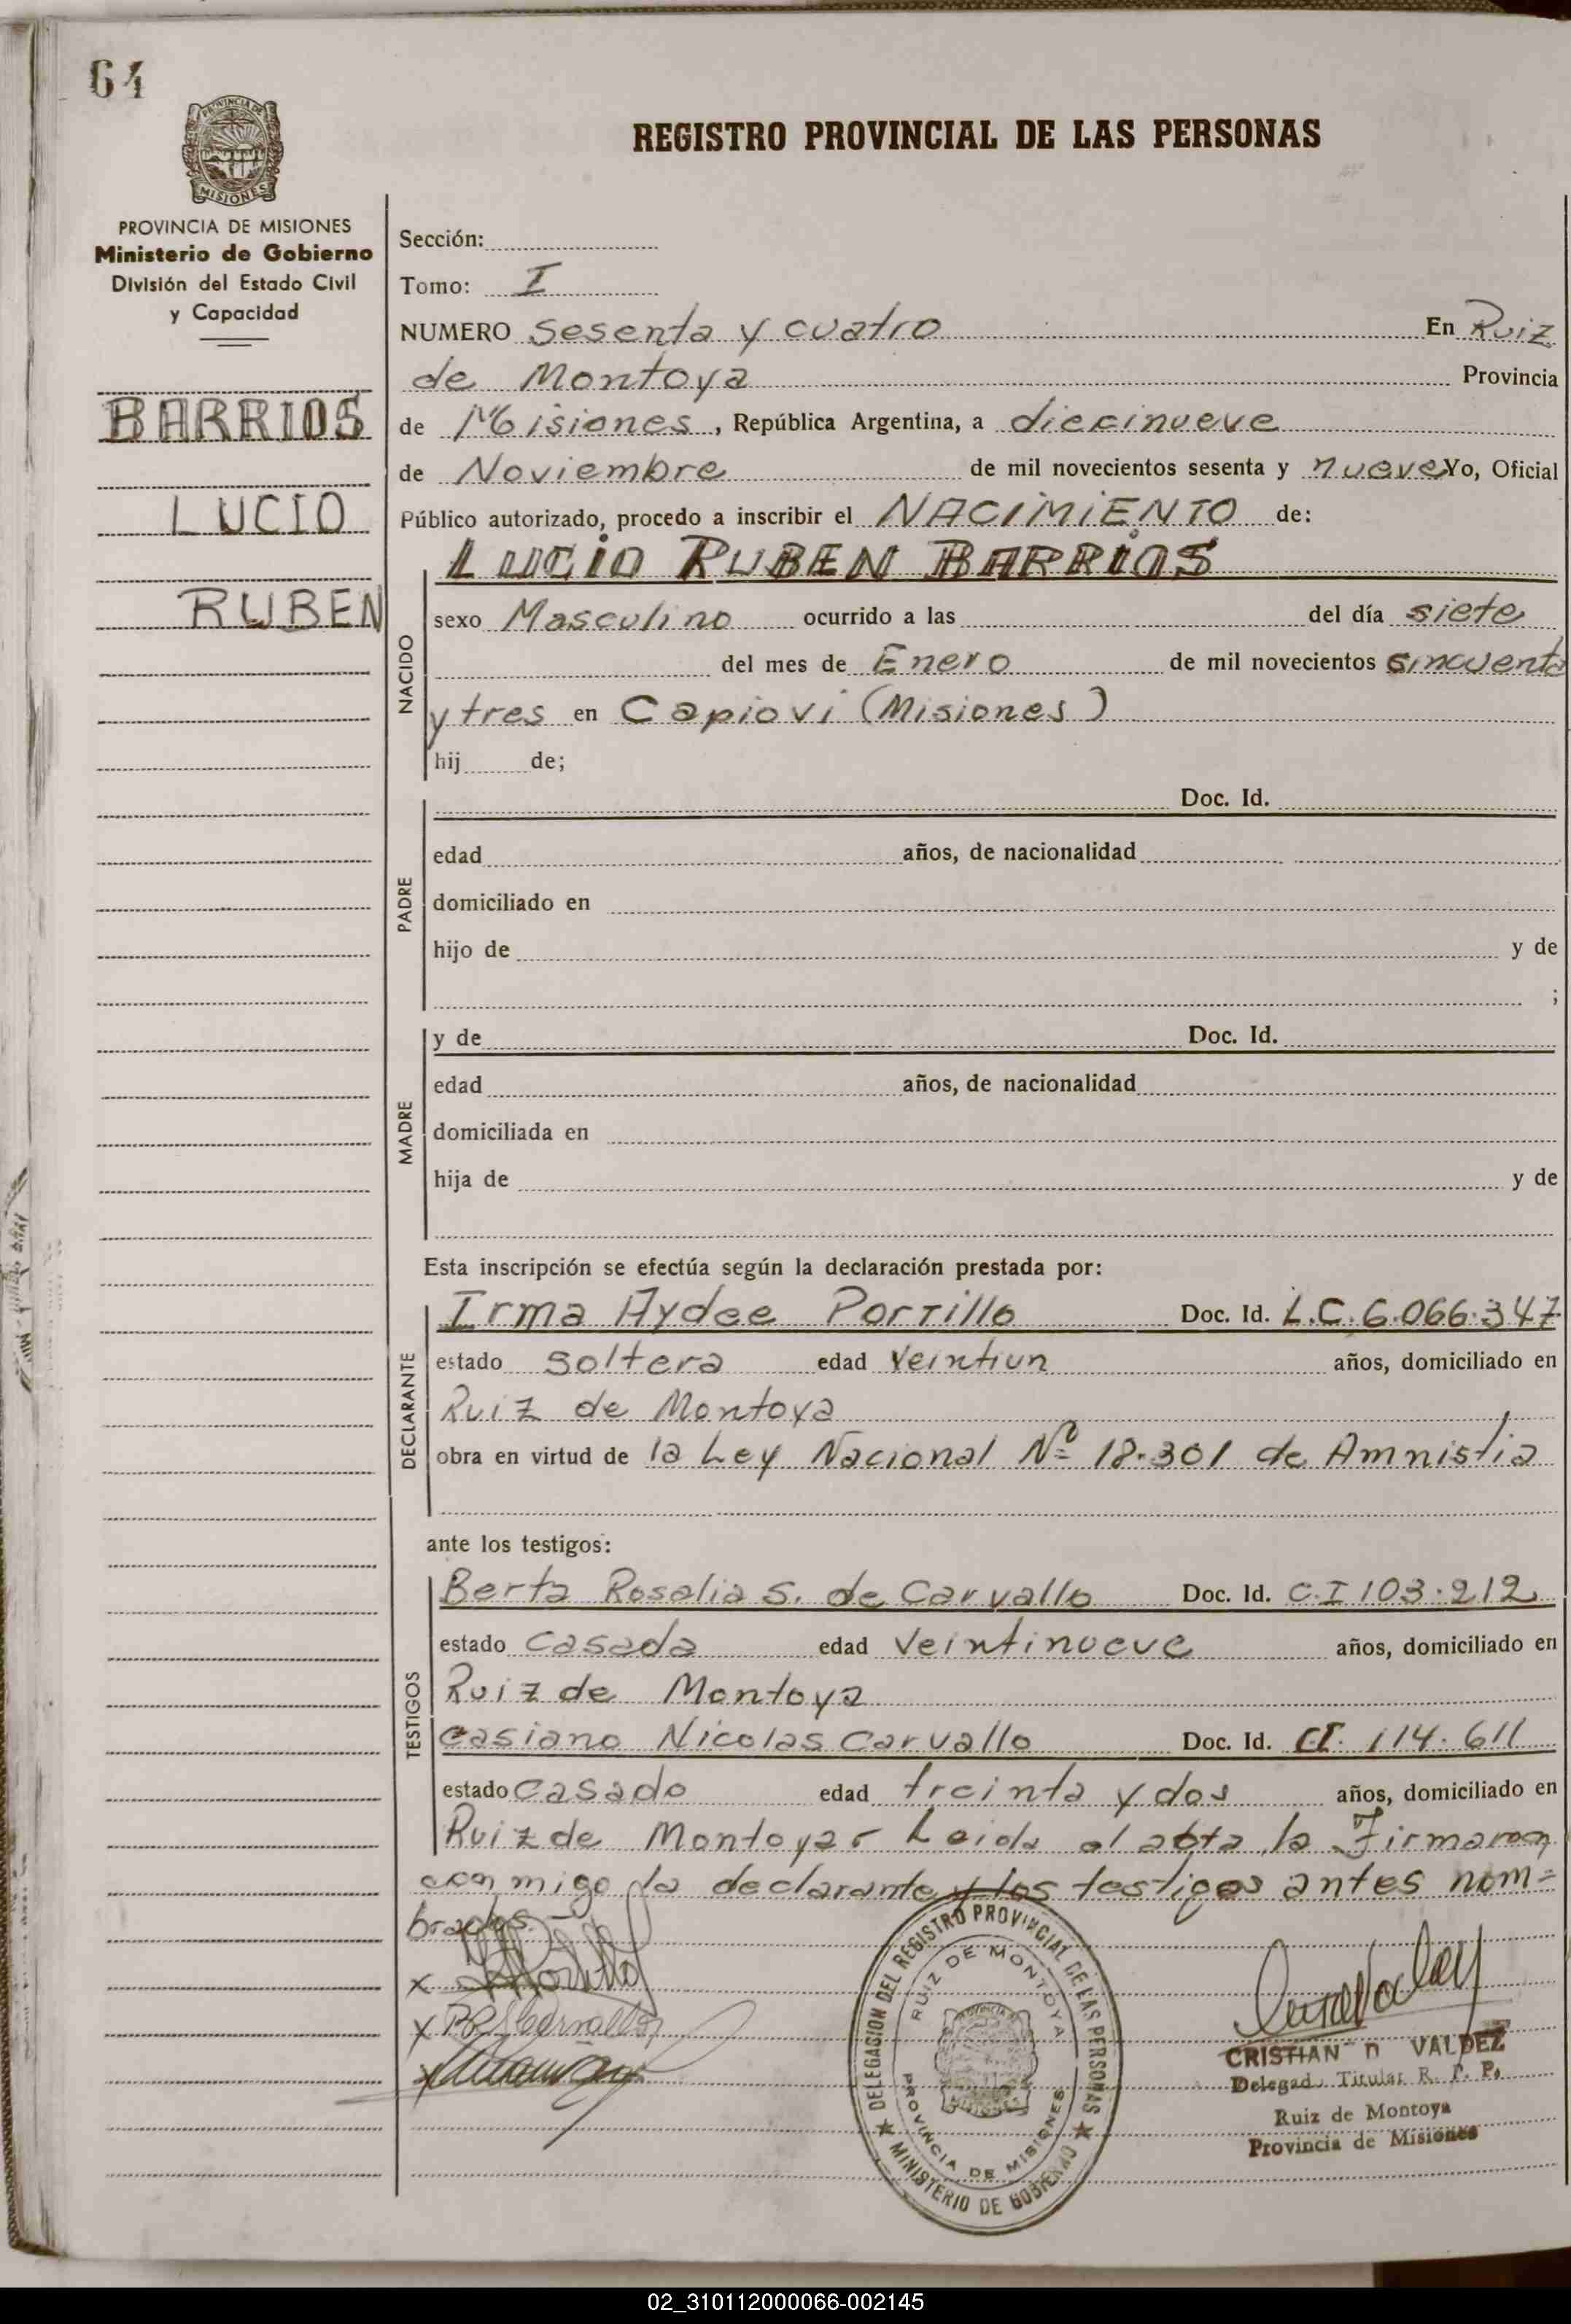 64
PROVINCIA DE
MISIONES
REGISTRO PROVINCIAL DE LAS PERSONAS
PROVINCIA DE MISIONES
Ministerio de Gobierno
División del Estado Civil
y Capacidad
BARRIOS
LUCIO
RUBEN
Sección:
Tomo: I
NUMERO Sesenta y cuatro En Ruiz
de Montoya Provincia
de Misiones, República Argentina, a diecinueve
de Noviembre de mil novecientos sesenta y nueve Yo, Oficial
Público autorizado, procedo a inscribir el NACIMIENTO de:
LUCIO RUBEN BARRIOS
NACIDO
sexo Masculino ocurrido a las del día siete
del mes de Enero de mil novecientos sincuenta
y tres en Capiovi (Misiones)
hij de;
PADRE
Doc. Id.
edad años, de nacionalidad
domiciliado en
hijo de y de
;
MADRE
y de Doc. Id.
edad años, de nacionalidad
domiciliada en
hija de y de
Esta inscripción se efectúa según la declaración prestada por:
DECLARANTE
Irma Aydee Portillo Doc. Id. L.C. 6.066.347
estado soltera edad Veintiun años, domiciliado en
Ruiz de Montoya
obra en virtud de la Ley Nacional Nº 18.301 de Amnistia
ante los testigos:
TESTIGOS
Berta Rosalia S. de Carvallo Doc. Id. C.I 103.212
estado casada edad veintinueve años, domiciliado en
Ruiz de Montoya
Casiano Nicolas Carvallo Doc. Id. C.I. 114.611
estado casado edad treinta y dos años, domiciliado en
Ruiz de Montoya Leida el acta la Firmaron
conmigo la declarante y los testigos antes nom=
brados.
x
x
x
DELEGASION DEL REGISTRO PROVINCIAL DE LAS PERSONAS
RUIZ DE MONTOYA
PROVINCIA DE MISIONES
MINISTERIO DE GOBIERNO
CRISTIAN D VALDEZ
Delegado Titular R. P. P.
Ruiz de Montoya
Provincia de Misiones
02_310112000066-002145